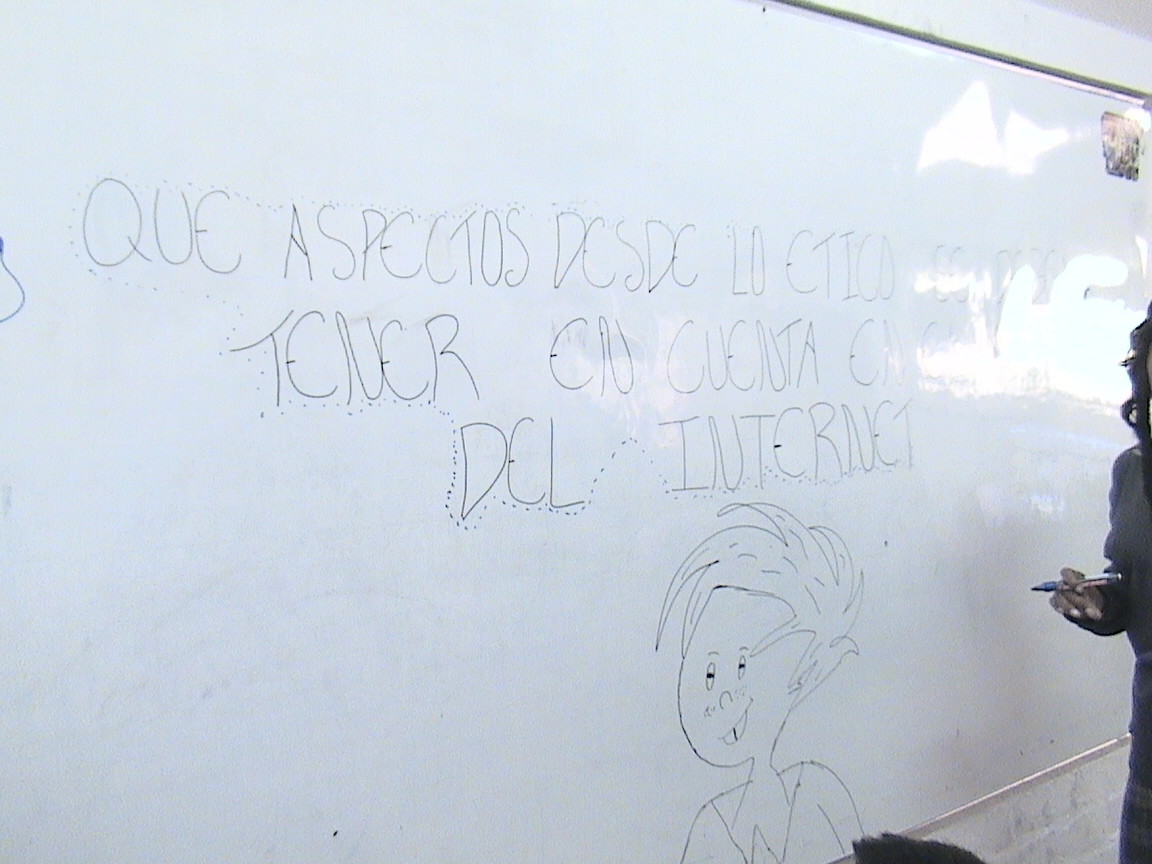 QUE ASPECTOS DESDE LO ETICO SE DEBE
TENER EN CUENTA EN
DEL INTERNET